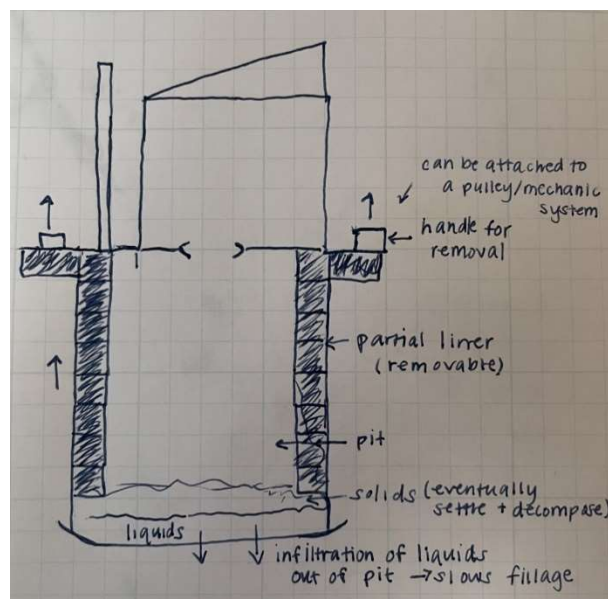 can be attached to
a pulley/mechanic
system
handle for
removal
partial liner
(removable)
pit
solids (eventually
settle + decompase)
liquids
infiltration of liquids
out of pit → slows fillage